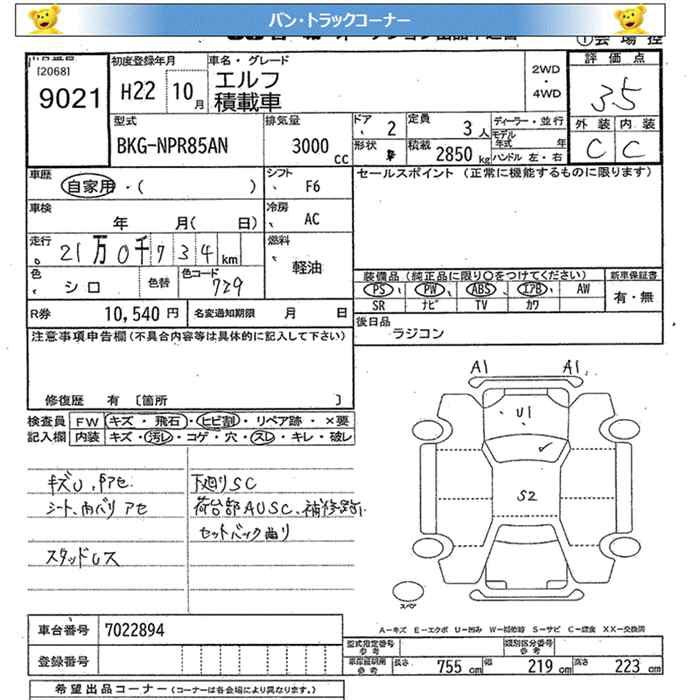 バン・トラックコーナー
評価点
[2068]
9021
初度登録年月
H22 10月
車名・グレード
エルフ
積載車
2WD
・
4WD
35
型式
BKG-NPR85AN
排気量
3000 cc
ドア 2
形状
定員 3人
積載 2850 kg
ディーラー・並行
モデル年式 年
ハンドル 左・右
外装 内装
C C
車歴
自家用・( )
シフト F6
セールスポイント (正常に機能するものに限ります)
車検
年 月( 日)
冷房 AC
走行
21万0千734km
燃料
軽油
色
シロ
色替
色コード
729
装備品(純正品に限り○をつけてください)
新車保証書
PS PW ABS エアB AW
SR ナビ TV カワ
有・無
R券 10,540円
名変通知期限 月 日
後日品
ラジコン
注意事項申告欄(不具合内容等は具体的に記入して下さい)
修復歴 有 〔箇所 〕
検査員
記入欄
FW キズ・飛石・ヒビ割・リペア跡・×要
内装 キズ・汚レ・コゲ・穴・スレ・キレ・破レ
A1 A1
U1
S2
スペア
下廻りSC
シート、内バリアセ
荷台部AUSC、補修跡
セットバック曲り
スタッドレス
A－キズ E－エクボ U－凹み W－補修跡 S－サビ C－腐食 XX－交換済
車台番号 7022894
登録番号
型式指定番号
参考
類別区分番号
参考
長さ 755cm 幅 219cm 高さ 223cm
希望出品コーナー(コーナーは各会場により異なります。)